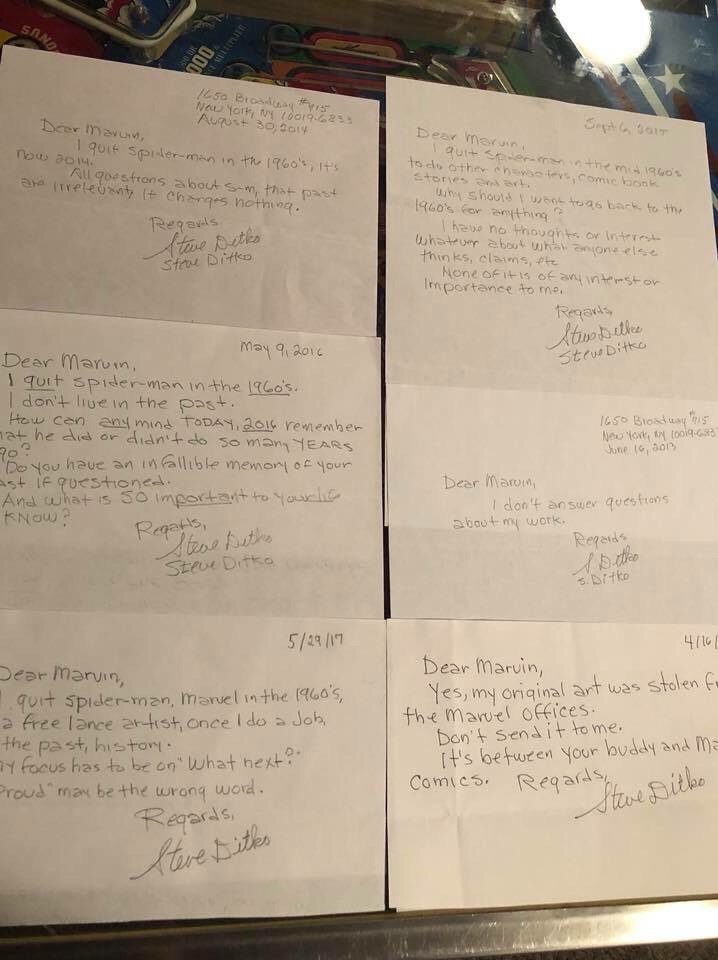 BONUS
000
MULTIPLIER
1650 Broadway #715
New York, NY 10019-6833
August 30, 2014
Dear Marvin,
I quit spider-man in the 1960's, it's
now 2014.
All questions about S-m, that past
are irrelevant, It changes nothing.
Regards
Steve Ditko
Steve Ditko
Sept 6, 2015
Dear Marvin,
I quit Spider-man in the mid 1960's
to do other characters, comic book
stories and art.
Why should I want to go back to the
1960's for anything?
I have no thoughts or interest
whatever about what anyone else
thinks, claims, etc
None of it is of any interest or
importance to me.
Regards,
Steve Ditko
Steve Ditko
May 9, 2016
Dear Marvin,
I quit spider-man in the 1960's.
I don't live in the past.
How can any mind TODAY, 2016 remember
at he did or didn't do so many YEARS
go?
Do you have an infallible memory of your
ast if questioned.
And what is SO important to
KNOW?
Regards,
Steve Ditko
Steve Ditko
1650 Broadway #715
New York, NY 10019-6833
June 16, 2013
Dear Marvin,
I don't answer questions
about my work.
Regards
S Ditko
S. Ditko
5/29/17
Dear Marvin,
I quit spider-man, Marvel in the 1960's,
a free lance artist, once I do a job,
the past, history.
y focus has to be on "What next?"
Proud" may be the wrong word.
Regards,
Steve Ditko
4/16/
Dear Marvin,
Yes, my original art was stolen fr
the Marvel offices.
Don't send it to me.
It's between your buddy and Ma
Comics. Regards,
Steve Ditko